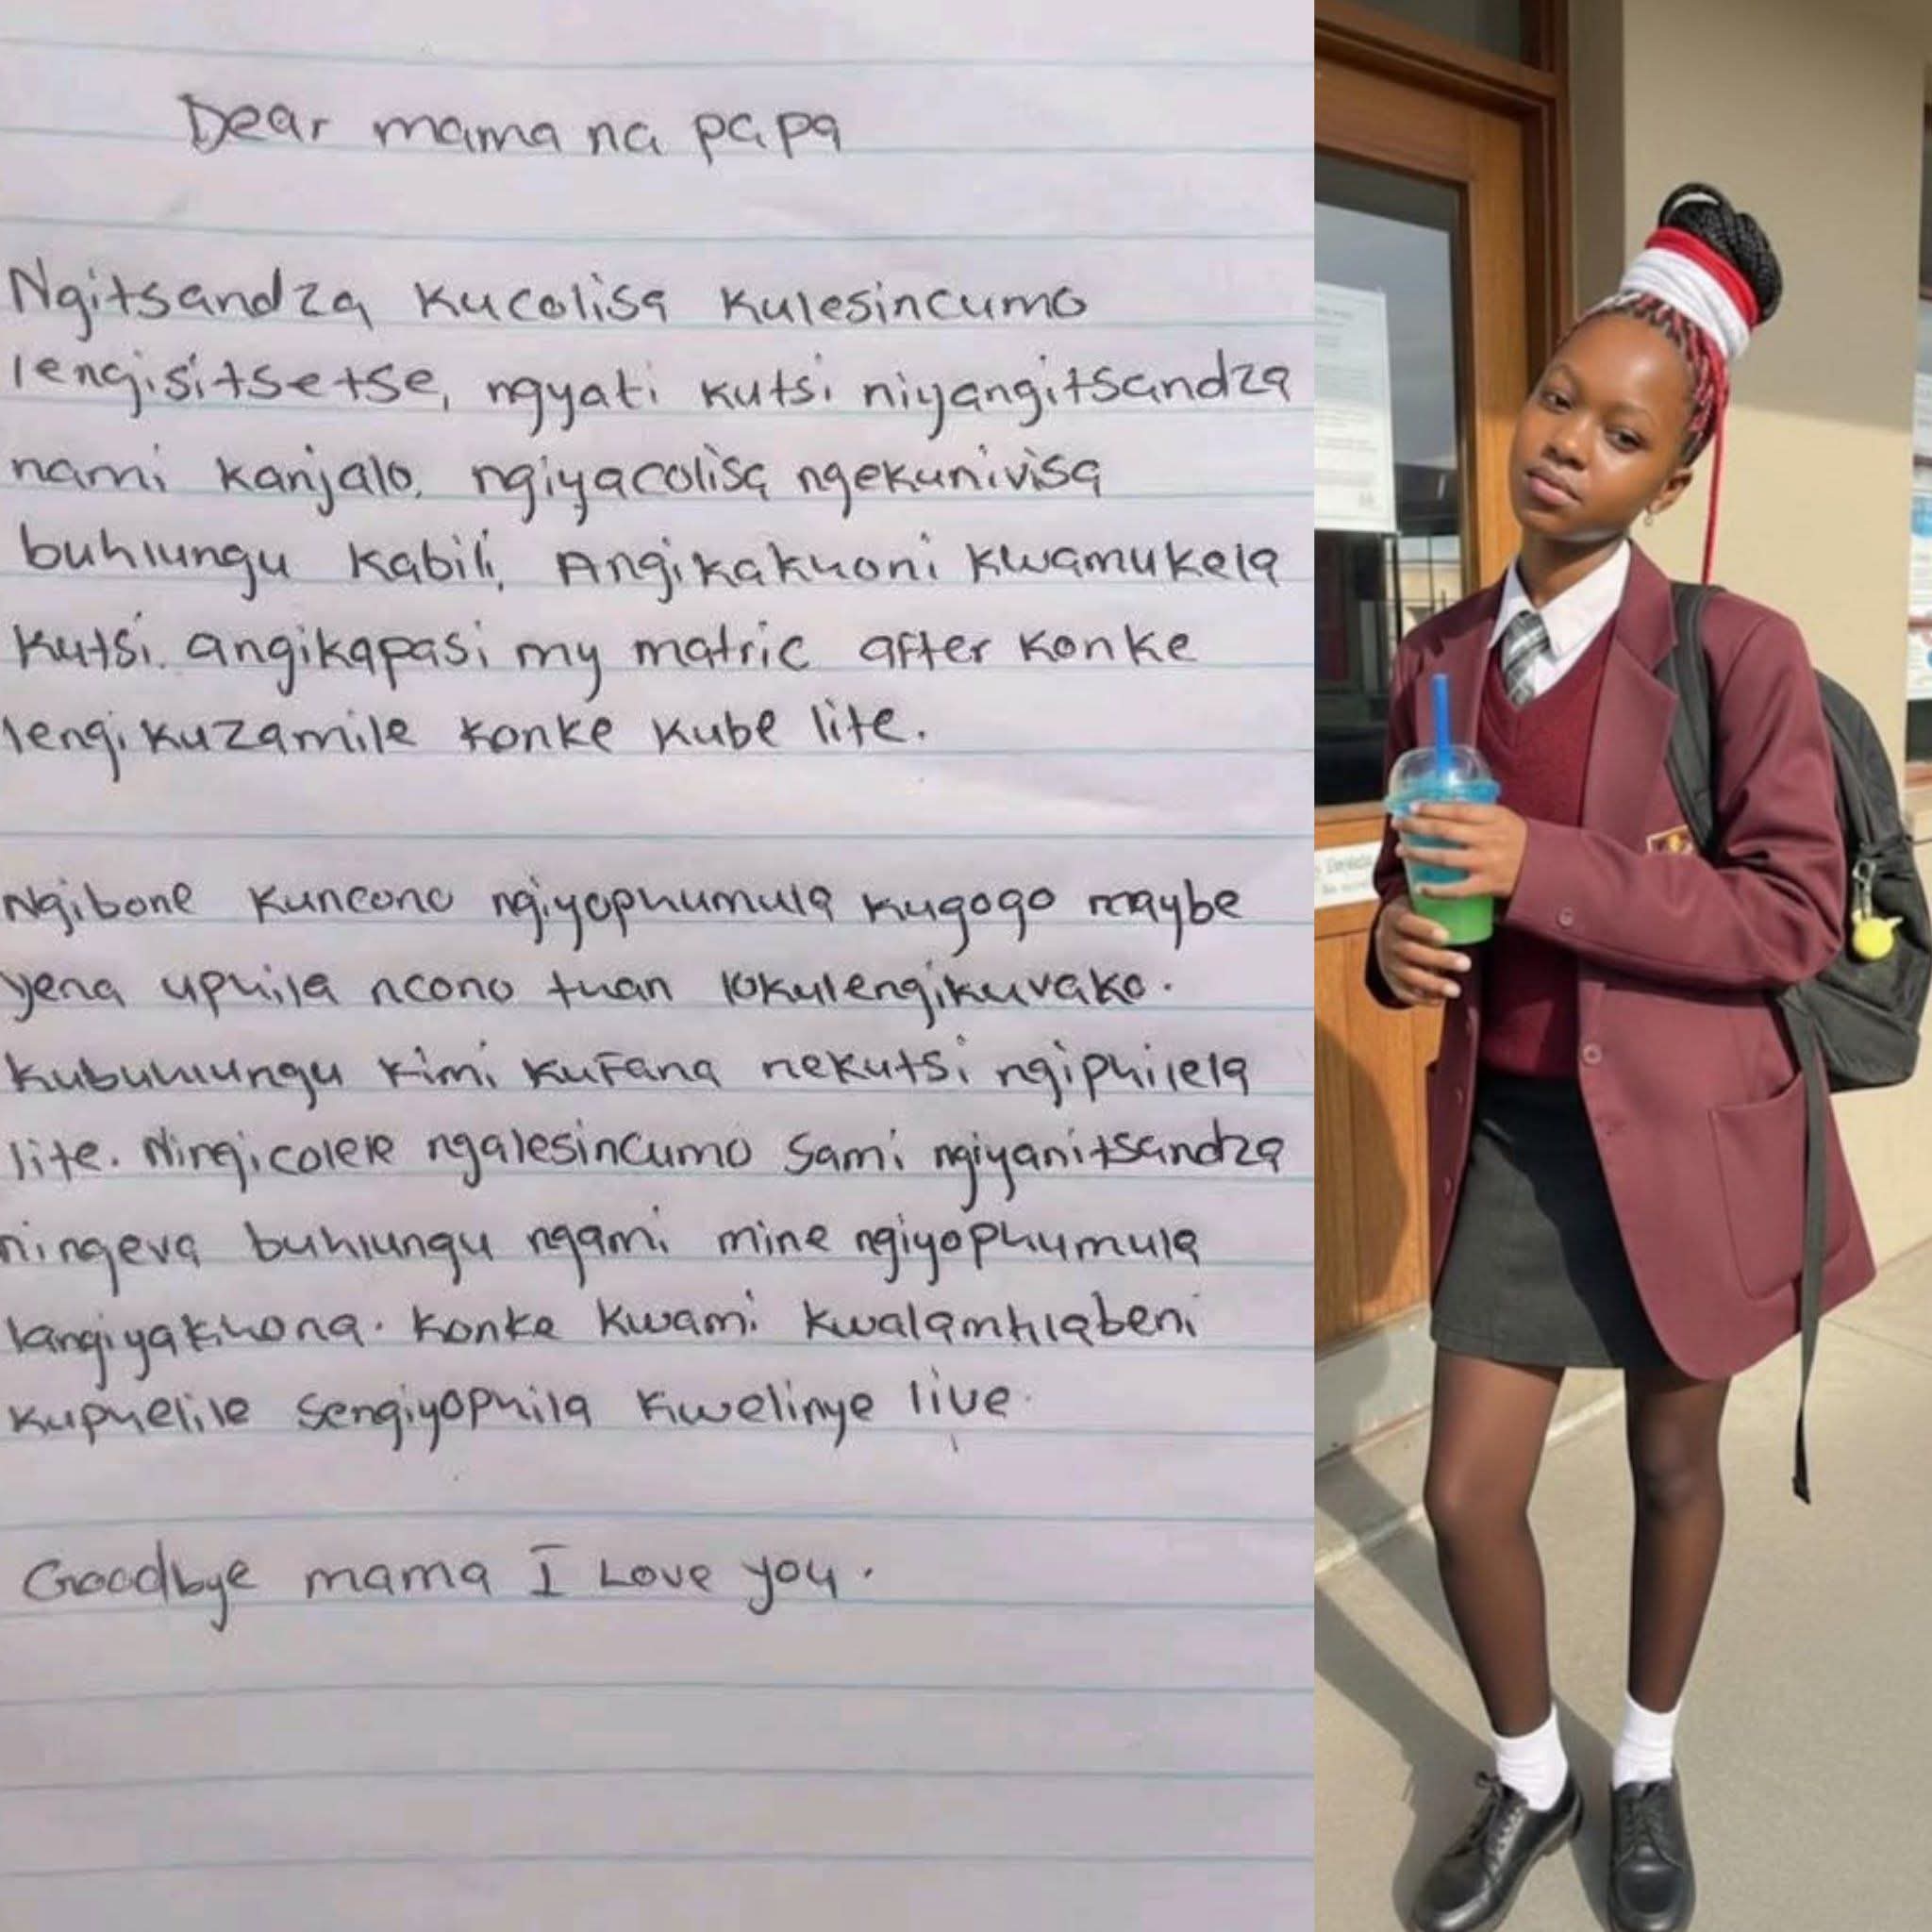 Dear mama na papa
Ngitsandza kucolisa kulesincumo
lengisitsetse, ngyati kutsi niyangitsandza
nami kanjalo, ngiyacolisa ngekunivisa
buhlungu kabili, Angikakhoni kwamukela
kutsi angikapasi my matric after konke
lengikuzamile konke kube lite.
Ngibone kuncono ngiyophumula kugogo maybe
yena uphila ncono than lokulengikuvako.
kubuhlungu kimi kufana nekutsi ngiphilela
lite. Ningicolele ngalesincumo sami ngiyanitsandza
ningeva buhlungu ngami mine ngiyophumula
langiyakhona. konke kwami kwalamhlabeni
kuphelile sengiyophila kwelinye live.
Goodbye mama I Love you.